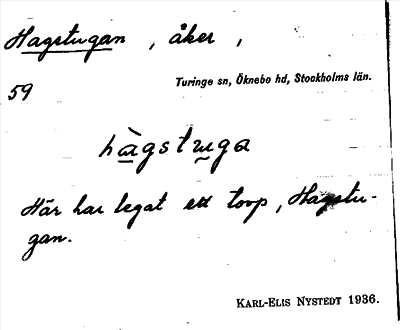 Hagstugan, åker,
Turinge sn, Öknebo hd, Stockholms län.
59
hàgstuga
Här har legat ett torp, Hagstu-
gan.
KARL-ELIS NYSTEDT 1936.